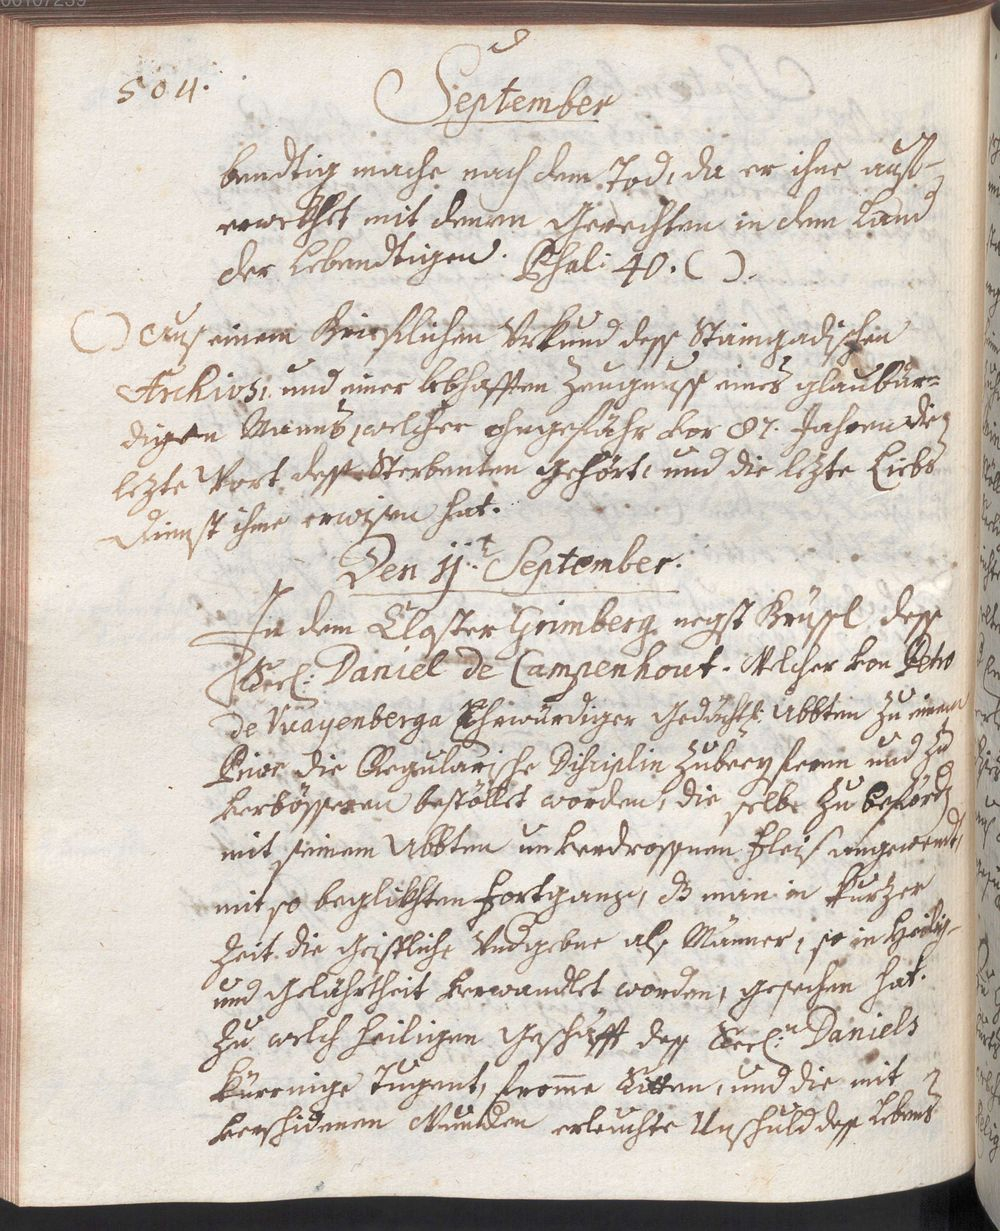 504.
September
bendtig mache nach dem Tod, da er ihne auß-
erwehlet mit denen Gerechten in dem Land
der Lebendtigen. Psal: 40. ( ).
( ) Aus einem Briefflichen Urkund deß Staingadischen
Archivs, und einer lebhafften Zeugnuß eines glaubwür=
digen Manns, welcher ohngefähr vor 87. Jahren die
letzte Wort deß Sterbenten gehört, und die letzte Liebs
Dienst ihme erwisen hat.
Den 11t. September.
In dem Closter Grimberg negst Brüssel deß
Seel: Daniel de Campenhout. Welcher von Petro
de Wayenberga Ehrwürdiger Gedächtß. Abbten zu einem
Prior die Regularische Disciplin zu und zu
verbösseren bestöllet worden, die selbe zu beförd
mit seinem Abbten unverdrossnen Fleiß angewendt,
mit so beglikhten Fortgang, dß man in kurtzer
Zeit die Geistliche Undgebne als Männer, so in Heilig-
und Gelährtheit verwandlet worden, gesechen hat.
Zu welch heiligen Geschäfft deß Seel:n Daniels
Tugent, fromme Sitten, und die mit
verschidenen Wunden erleuchte Unschuld deß Lebens